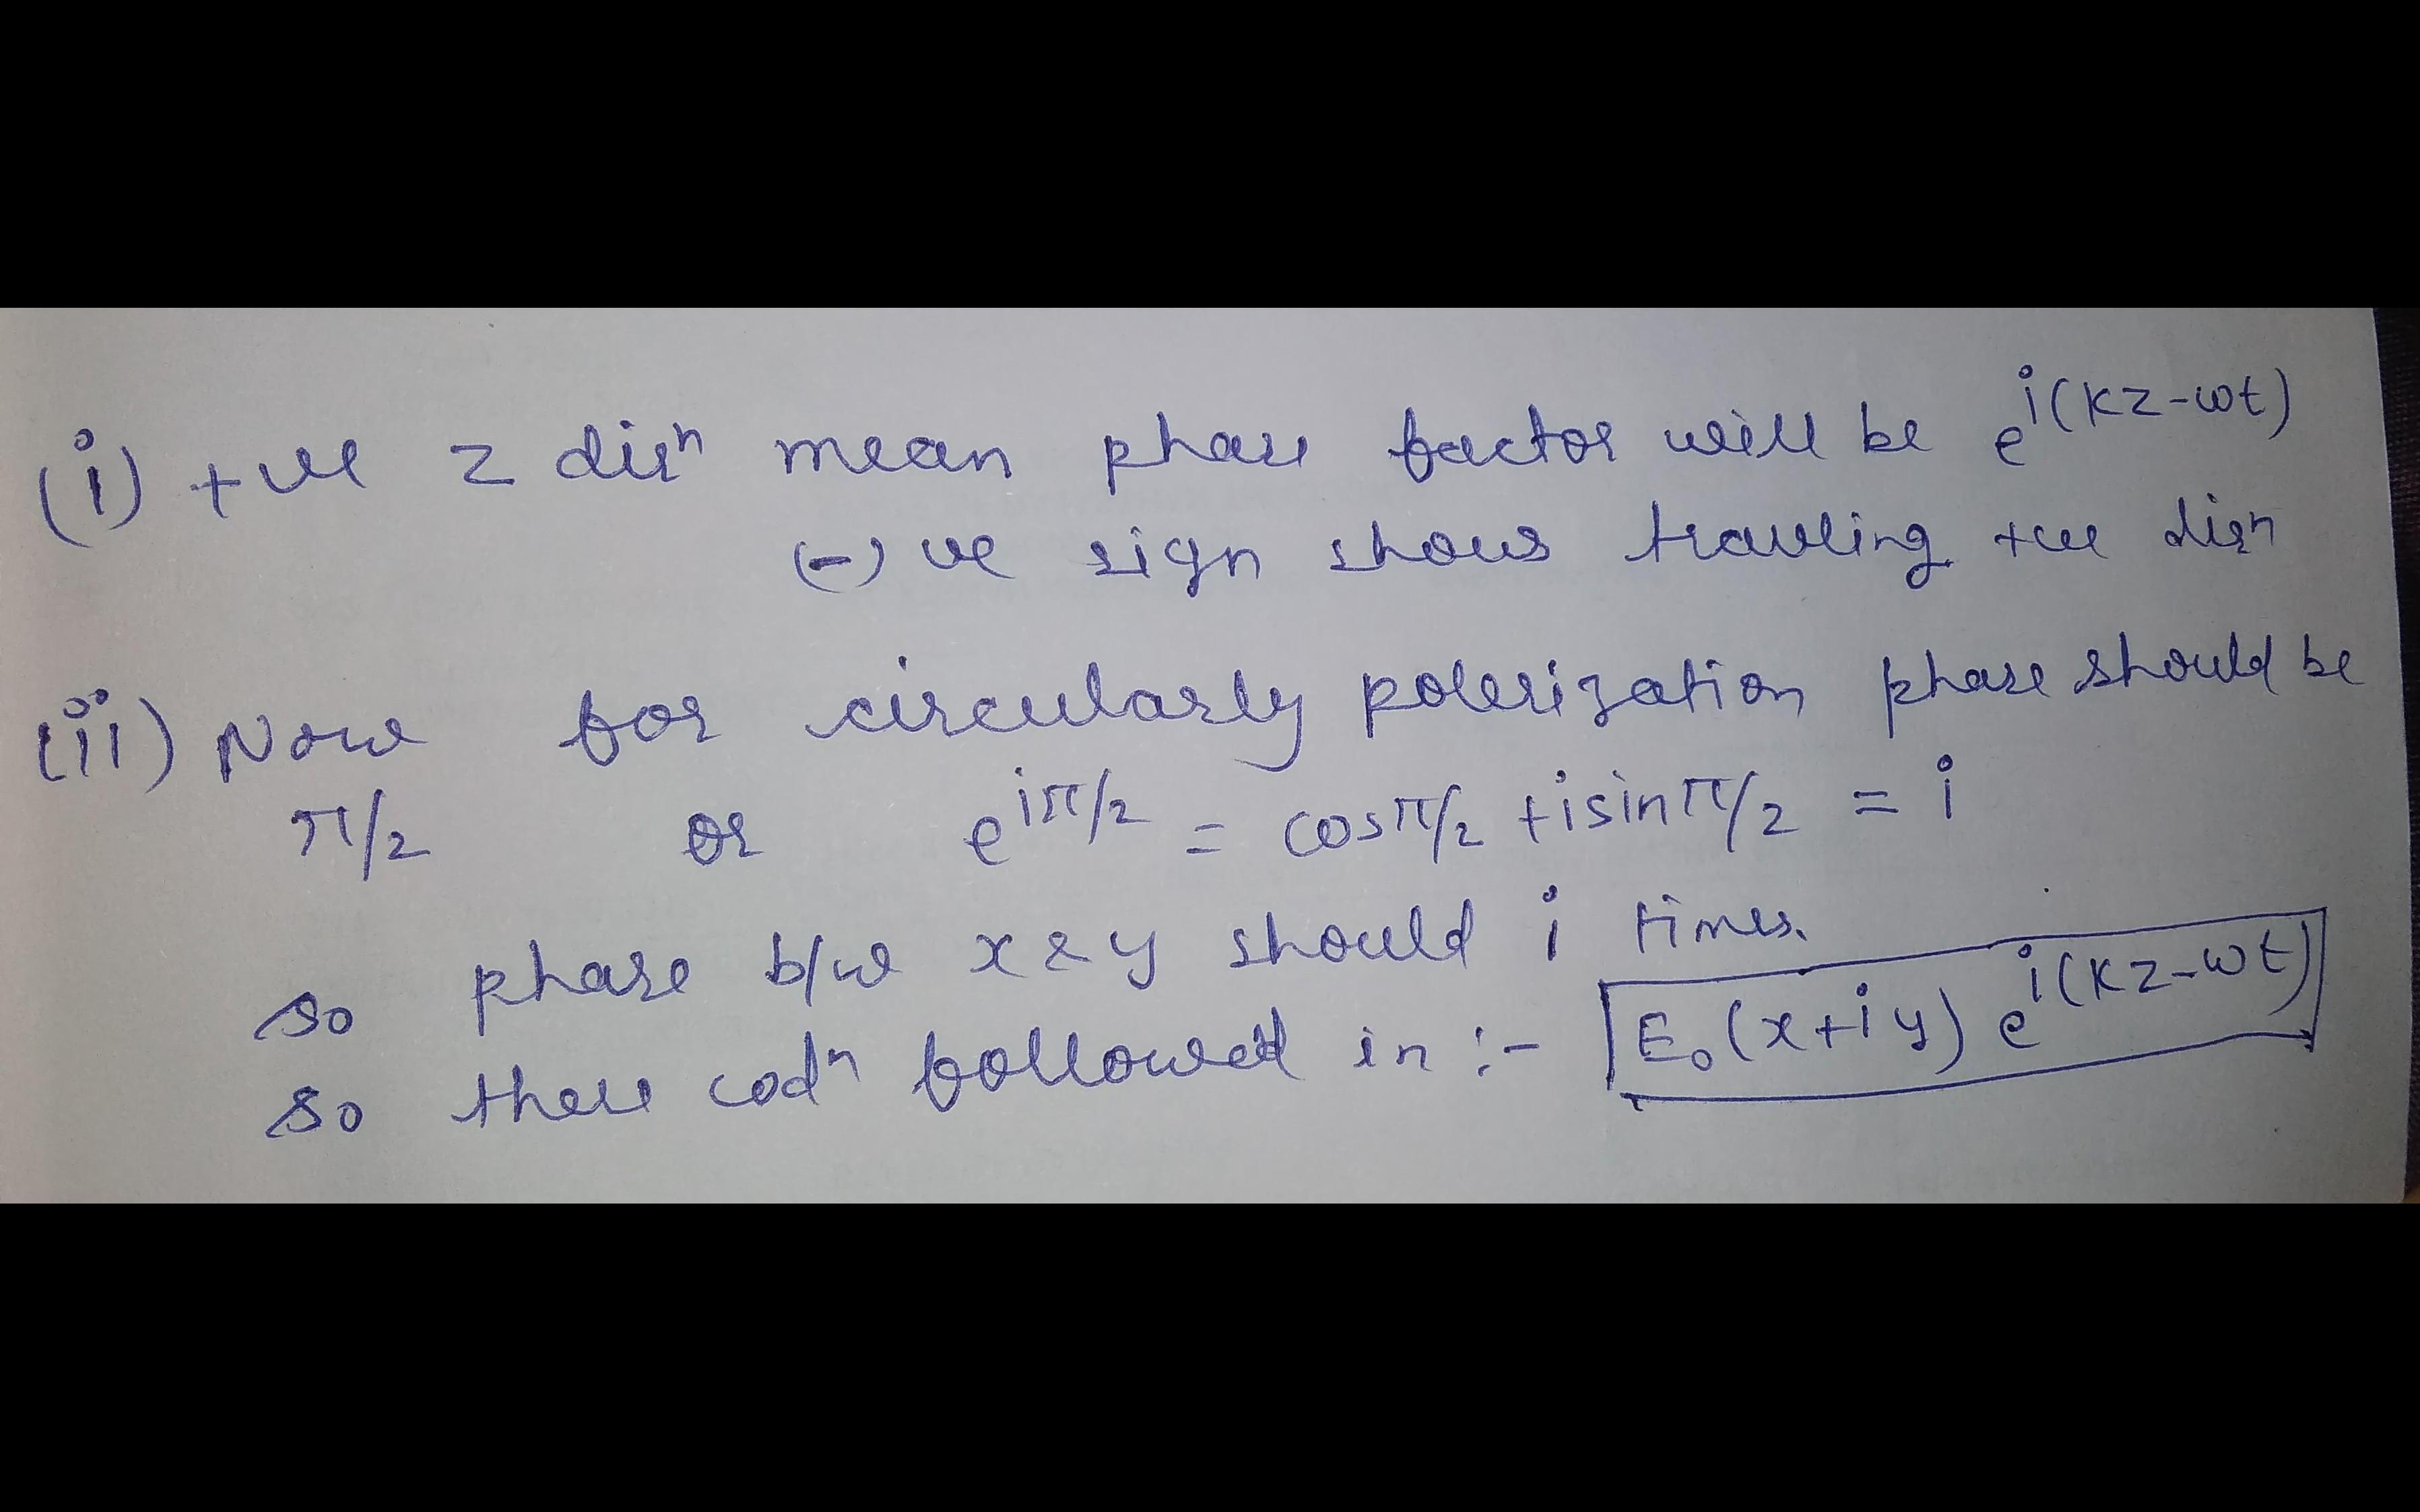 (i) +ve z dirⁿ mean phase factor will be e^{i(kz-wt)}
(-)ve sign shows travling +ve dirn
(ii) Now for circularly polerization phase should be
π/2 or e^{iπ/2} = cosπ/2 + isinπ/2 = i
so phase b/w x & y should i times.
so these codⁿ followed in :- E₀(x+iy) e^{i(kz-wt)}